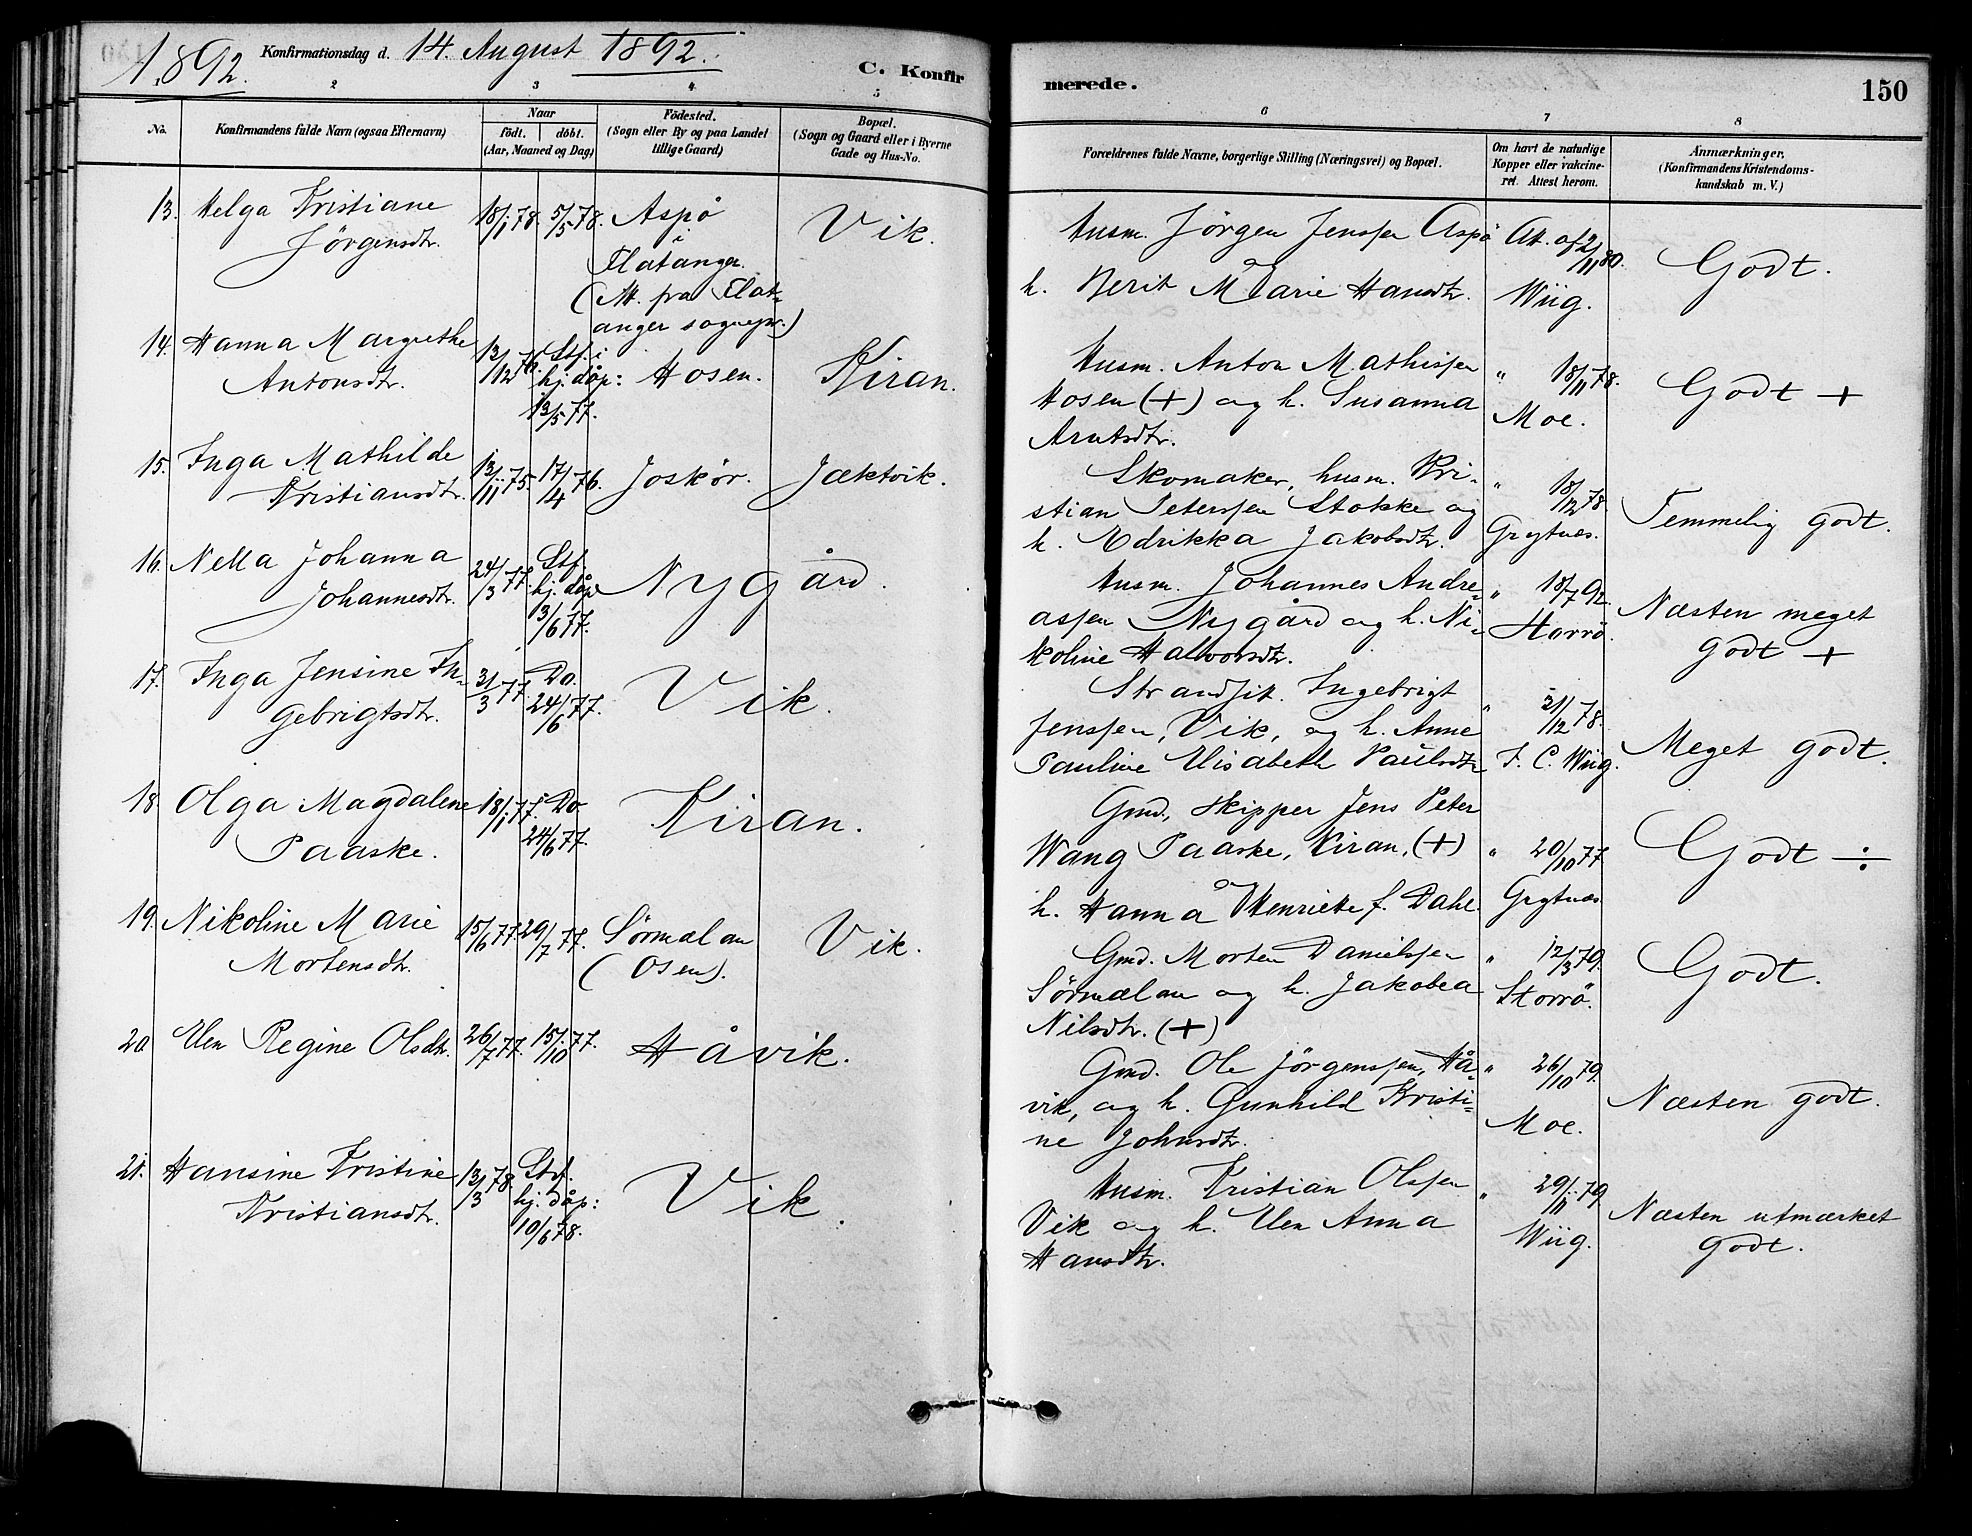 1892.
Konfirmationsdag d. 14. August 1892.
C. Konfirmerede.
150
2
3
4
5
6
7
8
No.
Konfirmandens fulde Navn (ogsaa Efternavn)
Naar
födt. | döbt.
(Aar, Maaned og Dag)
Födested.
(Sogn eller By og paa Landet
tillige Gaard)
Bopæl.
(Sogn og Gaard eller i Byerne
Gade og Hus-No.
Forældrenes fulde Navne, borgerlige Stilling (Næringsvei) og Bopæl.
Om havt de naturlige
Kopper eller vakcine-
ret. Attest herom.
Anmærkninger.
(Konfirmandens Kristendoms-
kundskab m. V.)
13. Helga Kristiane
Jörgensdtr.
18/1 78. 5/5 78.
Aspö
i
Flatanger.
(Att. fra Flat-
anger sognepr.)
Vik.
Husm. Jörgen Jenssen Aspö
h. Berit Marie Hansdtr.
Att. af 2/11 80.
Wiig.
Godt.
14. Hanna Margrethe
Antonsdtr.
13/12 76.
Stf. i
hj. dåp:
13/5 77.
Hosen.
Kiran.
Husm. Anton Mathissen
Hosen (+) og h. Susanna
Arntsdtr.
" 18/11 78.
Moe.
Godt +
15. Inga Mathilde
Kristiansdtr.
13/11 75. 17/4 76.
Joskør.
Jæktvik.
Skomaker, husm. Kri-
stian Peterssen Stokke og
h. Edrikka Jakobsdtr.
" 18/12 78
Grytnæs.
Temmelig godt.
16. Nella Johanna
Johannesdtr.
24/3 77.
Stf.
hj. dåp
13/6 77.
Nygård.
Husm. Johannes Andre-
assen Nygård og h. Ni-
koline Halvorsdtr.
" 18/7 92.
Storrö.
Næsten meget
godt +
17. Inga Jensine In-
gebrigtsdtr.
31/3 77.
Do.
24/6 77.
Vik.
Strandsit. Ingebrigt
Jenssen, Vik, og h. Anne
Pauline Elisabeth Paulsdtr
" 21/12 78.
F. C. Wiig.
Meget godt.
18. Olga Magdalene
Paaske.
18/1 77.
Do
24/6 77.
Kiran.
Gmd, skipper Jens Peter
Wang Paaske, Kiran, (+)
h. Hanna Henriette f. Dahl.
" 20/10 77
Grytnæs
Godt ÷
19. Nikoline Marie
Mortensdtr.
15/6 77. 29/7 77.
Sörmælan
(Osen).
Vik.
Gmd. Morten Danielssen
Sörmælan og h. Jakobea
Nilsdtr. (+)
" 12/3 79.
Storrö.
Godt.
20 Elen Regine Olsdtr.
26/7 77. 15/10 77.
Håvik.
Gmd. Ole Jörgenssen, Hå-
vik, og h. Gunhild Kristi-
ne Johnsdtr.
" 26/10 79.
Moe.
Næsten godt.
21. Hansine Kristine
Kristiansdtr.
13/3 78.
Stf.
hj. dåp:
10/6 78.
Vik.
Husm. Kristian Olssen
Vik og h. Elen Anna
Hansdtr.
" 29/11 79
Wiig.
Næsten utmærket
godt.